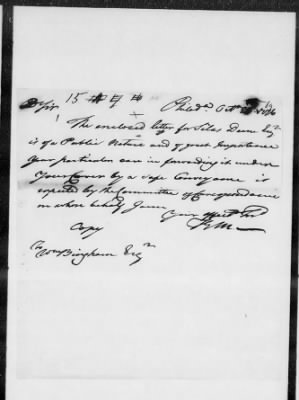 D Sir 15 # 4 # Philad.ª Oct
The enclosed letter for Silas Deane Esqr
is of a Public Nature and of great Importance
Your particular care in forwarding it under
Your Cover by a safe Conveyance is
expected by the Committee of Correspondence
on whose behalf I am
Your Obed Sr
RM
Copy
To Wm Bingham Esqr